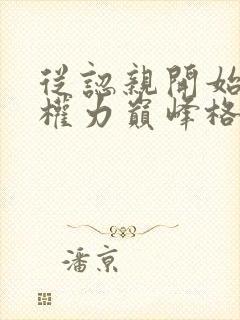 從認親開始
權力巔峰格
潘京